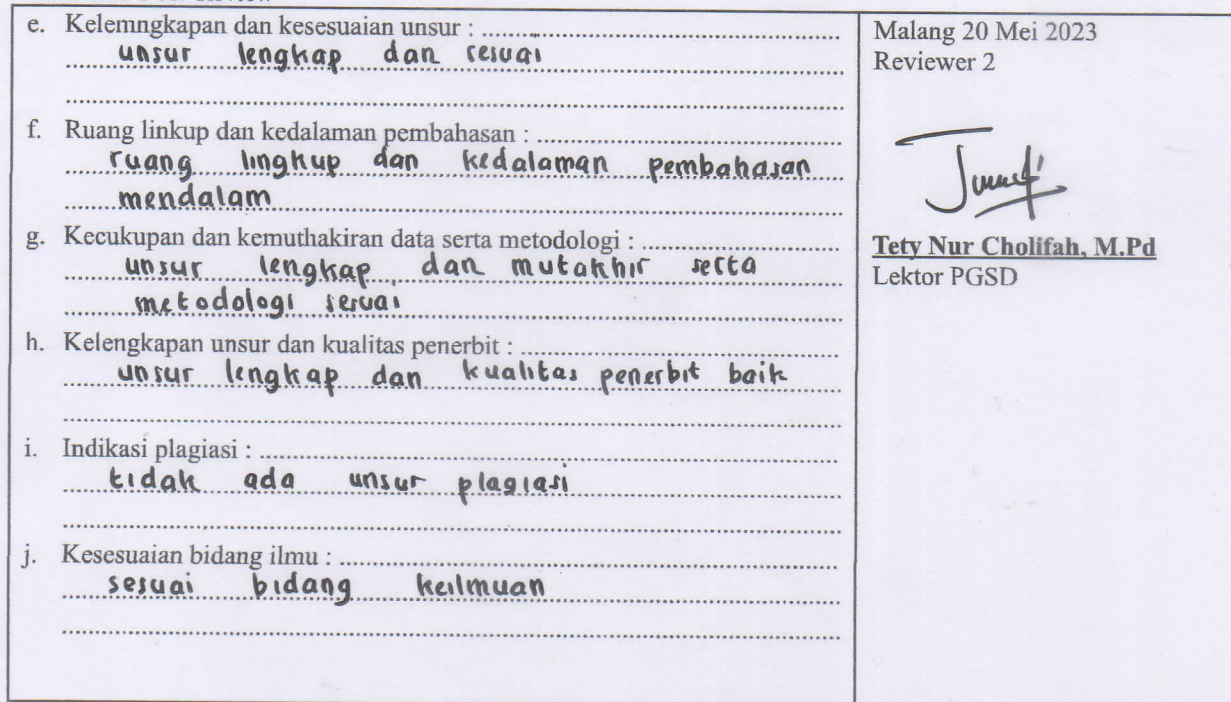 e. Kelemngkapan dan kesesuaian unsur : ........................................
unsur lengkap dan sesuai
f. Ruang linkup dan kedalaman pembahasan : ........................................
ruang lingkup dan kedalaman pembahasan
mendalam
g. Kecukupan dan kemuthakiran data serta metodologi : ........................................
unsur lengkap dan mutakhir serta
metodologi sesuai
h. Kelengkapan unsur dan kualitas penerbit : ........................................
unsur lengkap dan kualitas penerbit baik
i. Indikasi plagiasi : ........................................
tidak ada unsur plagiasi
j. Kesesuaian bidang ilmu : ........................................
sesuai bidang keilmuan
Malang 20 Mei 2023
Reviewer 2
Tety Nur Cholifah, M.Pd
Lektor PGSD